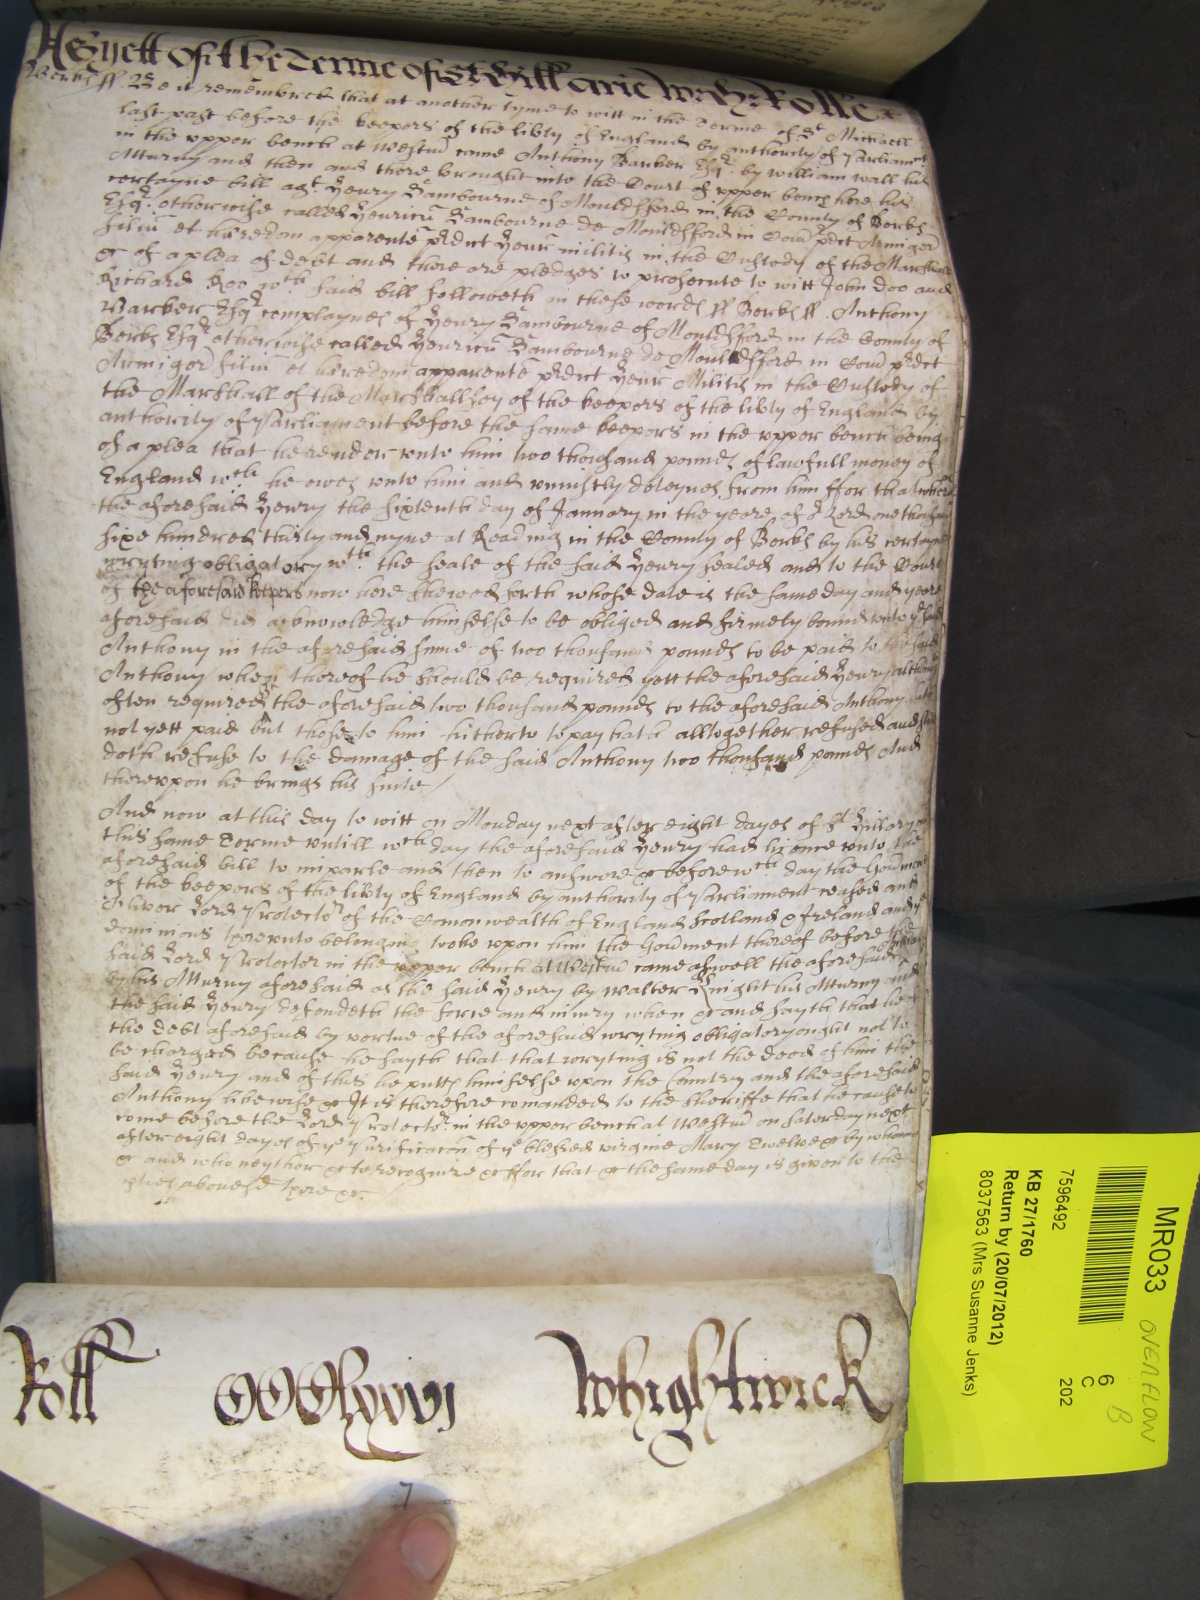 As yett of the Terme of St Hillarie Witn: Rolle
Berks ss. Be it remembred that at another tyme to witt in the Terme of St Michaell
last past before the keepers of the libty of England by authority of Parliament
in the upper bench at Westm came Anthony Barker Esqr. by William Wall his
Atturny and then and there brought into the Court of upper bench here his
certayne bill agt. Henry Sambourne of Mouldsford in the County of Berks
Esqr. otherwise called Henricu Sambourne de Mouldsford in Com pdict Armiger
filiu et haeredem apparente pdict Henr militis in the Custody of the Marshall
&c of a plea of debt and there are pledges to prosecute to witt John Doo and
Richard Roo wch said bill followeth in these words ss Berks ss. Anthony
Barker Esqr complaynes of Henry Sambourne of Mouldsford in the County of
Berks Esqr otherwise called Henricu Sambourne de Mouldsford in Com pdict
Armiger filiu et haeredem apparente pdict Henr Militis in the Custody of
the Marshall of the Marshallsey of the keepers of the libty of England by
authority of Parliament before the same keepers in the upper bench being
of a plea that he render unto him two thousand pounds of lawfull money of
England wch he owes unto him and uniustly deteynes from him ffor that where
the aforesaid Henry the sixtenth day of January in the yeare of or Lord one thousand
sixe hundred thirty and nyne at Reading in the County of Berks by his certayne
wryting obligatory wth the seale of the said Henry sealed and to the Court
of the aforesaid keepers now here shewed forth whose date is the same day and yeare
aforesaid did acknowledge himselfe to be obliged and firmely bound unto ye said
Anthony in the aforesaid sume of two thousand pounds to be paid to the said
Anthony when thereof he should be required yett the aforesaid Henry although
often required the aforesaid two thousand pounds to the aforesaid Anthony hath
not yett paid but those to him hitherto to pay hath alltogether refused and still
doth refuse to the damage of the said Anthony two thousand pounds And
thereupon he brings his suite
And now at this day to witt on Monday next after eight dayes of St Hillary in
this same Terme untill wch day the aforesaid Henry had licence unto the
aforesaid bill to imparle and then to answere &c before wch day the Govment
of the keepers of the libty of England by authority of Parliament ceased and
Oliver Lord Protector of the Comon wealth of England Scotland & Ireland and ye
dominions thereunto belonging tooke upon him the Govment thereof before the
said Lord Protector in the upper bench at Westm came aswell the aforesaid Anthony
by his Atturny aforesaid as the said Henry by Walter Knight his Atturny and
the said Henry defendeth the force and iniury when &c and sayth that he
the debt aforesaid by vertue of the aforesaid wryting obligatory ought not to
be charged because he sayth that that wryting is not the deed of him the
said Henry and of this he putts himselfe upon the Country and the aforesaid
Anthony likewise &c It is therefore comanded to the Sheriffe that he cause to
come before the Lord Protector in the upper bench at Westm on Saturday next
after eight dayes of ye Purificacon of ye blessed virgine Mary Twelve &c by whome
&c and who neyther &c to recognize &c ffor that &c the same day is given to the
pties abovesd there &c.
Roll CCClxxvj Whightwick
7
MR033
OVERFLOW
B
6
C
202
7596492
KB 27/1760
Return by (20/07/2012)
8037563 (Mrs Susanne Jenks)